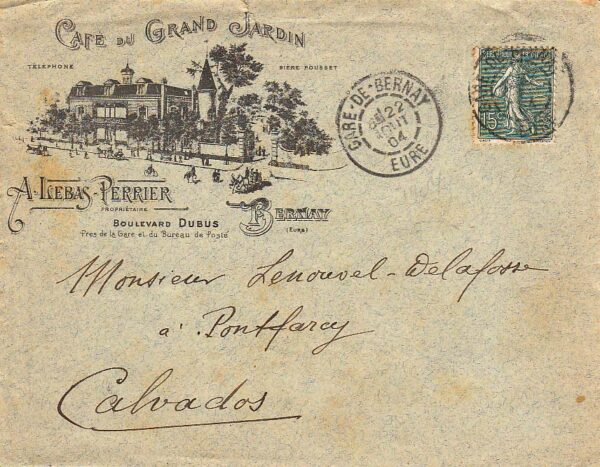 CAFE DU GRAND JARDIN
TÉLÉPHONE
BIÈRE POUSSET
A. LEBAS-PERRIER
PROPRIÉTAIRE
BOULEVARD DUBUS
Près de la Gare et du Bureau de Poste
BERNAY
(EURE)
GARE-DE-BERNAY
22
AOUT
04
EURE
15
1904
Monsieur Lenouvel-Delafosse
à Pontfarcy
Calvados